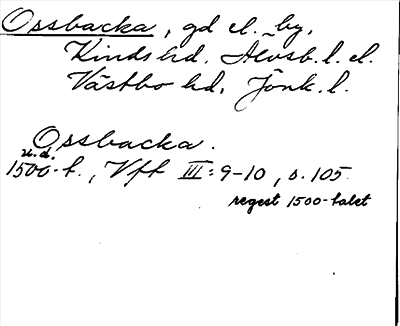 Ossbacka, gd el. by,
Kinds hd. Älvsb. l. el.
Västbo hd, Jönk. l.
Ossbacka.
u.d.
1500-t., Vfft III: 9-10, s. 105
regest 1500-talet